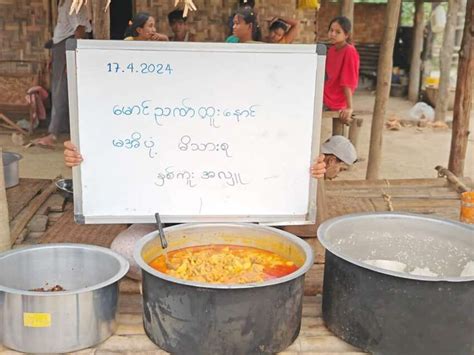 17.4.2024
မောင်ဉာဏ်ထူးနောင်
မအိပုံ့ မိသားစု
နှစ်ကူး အလှူ